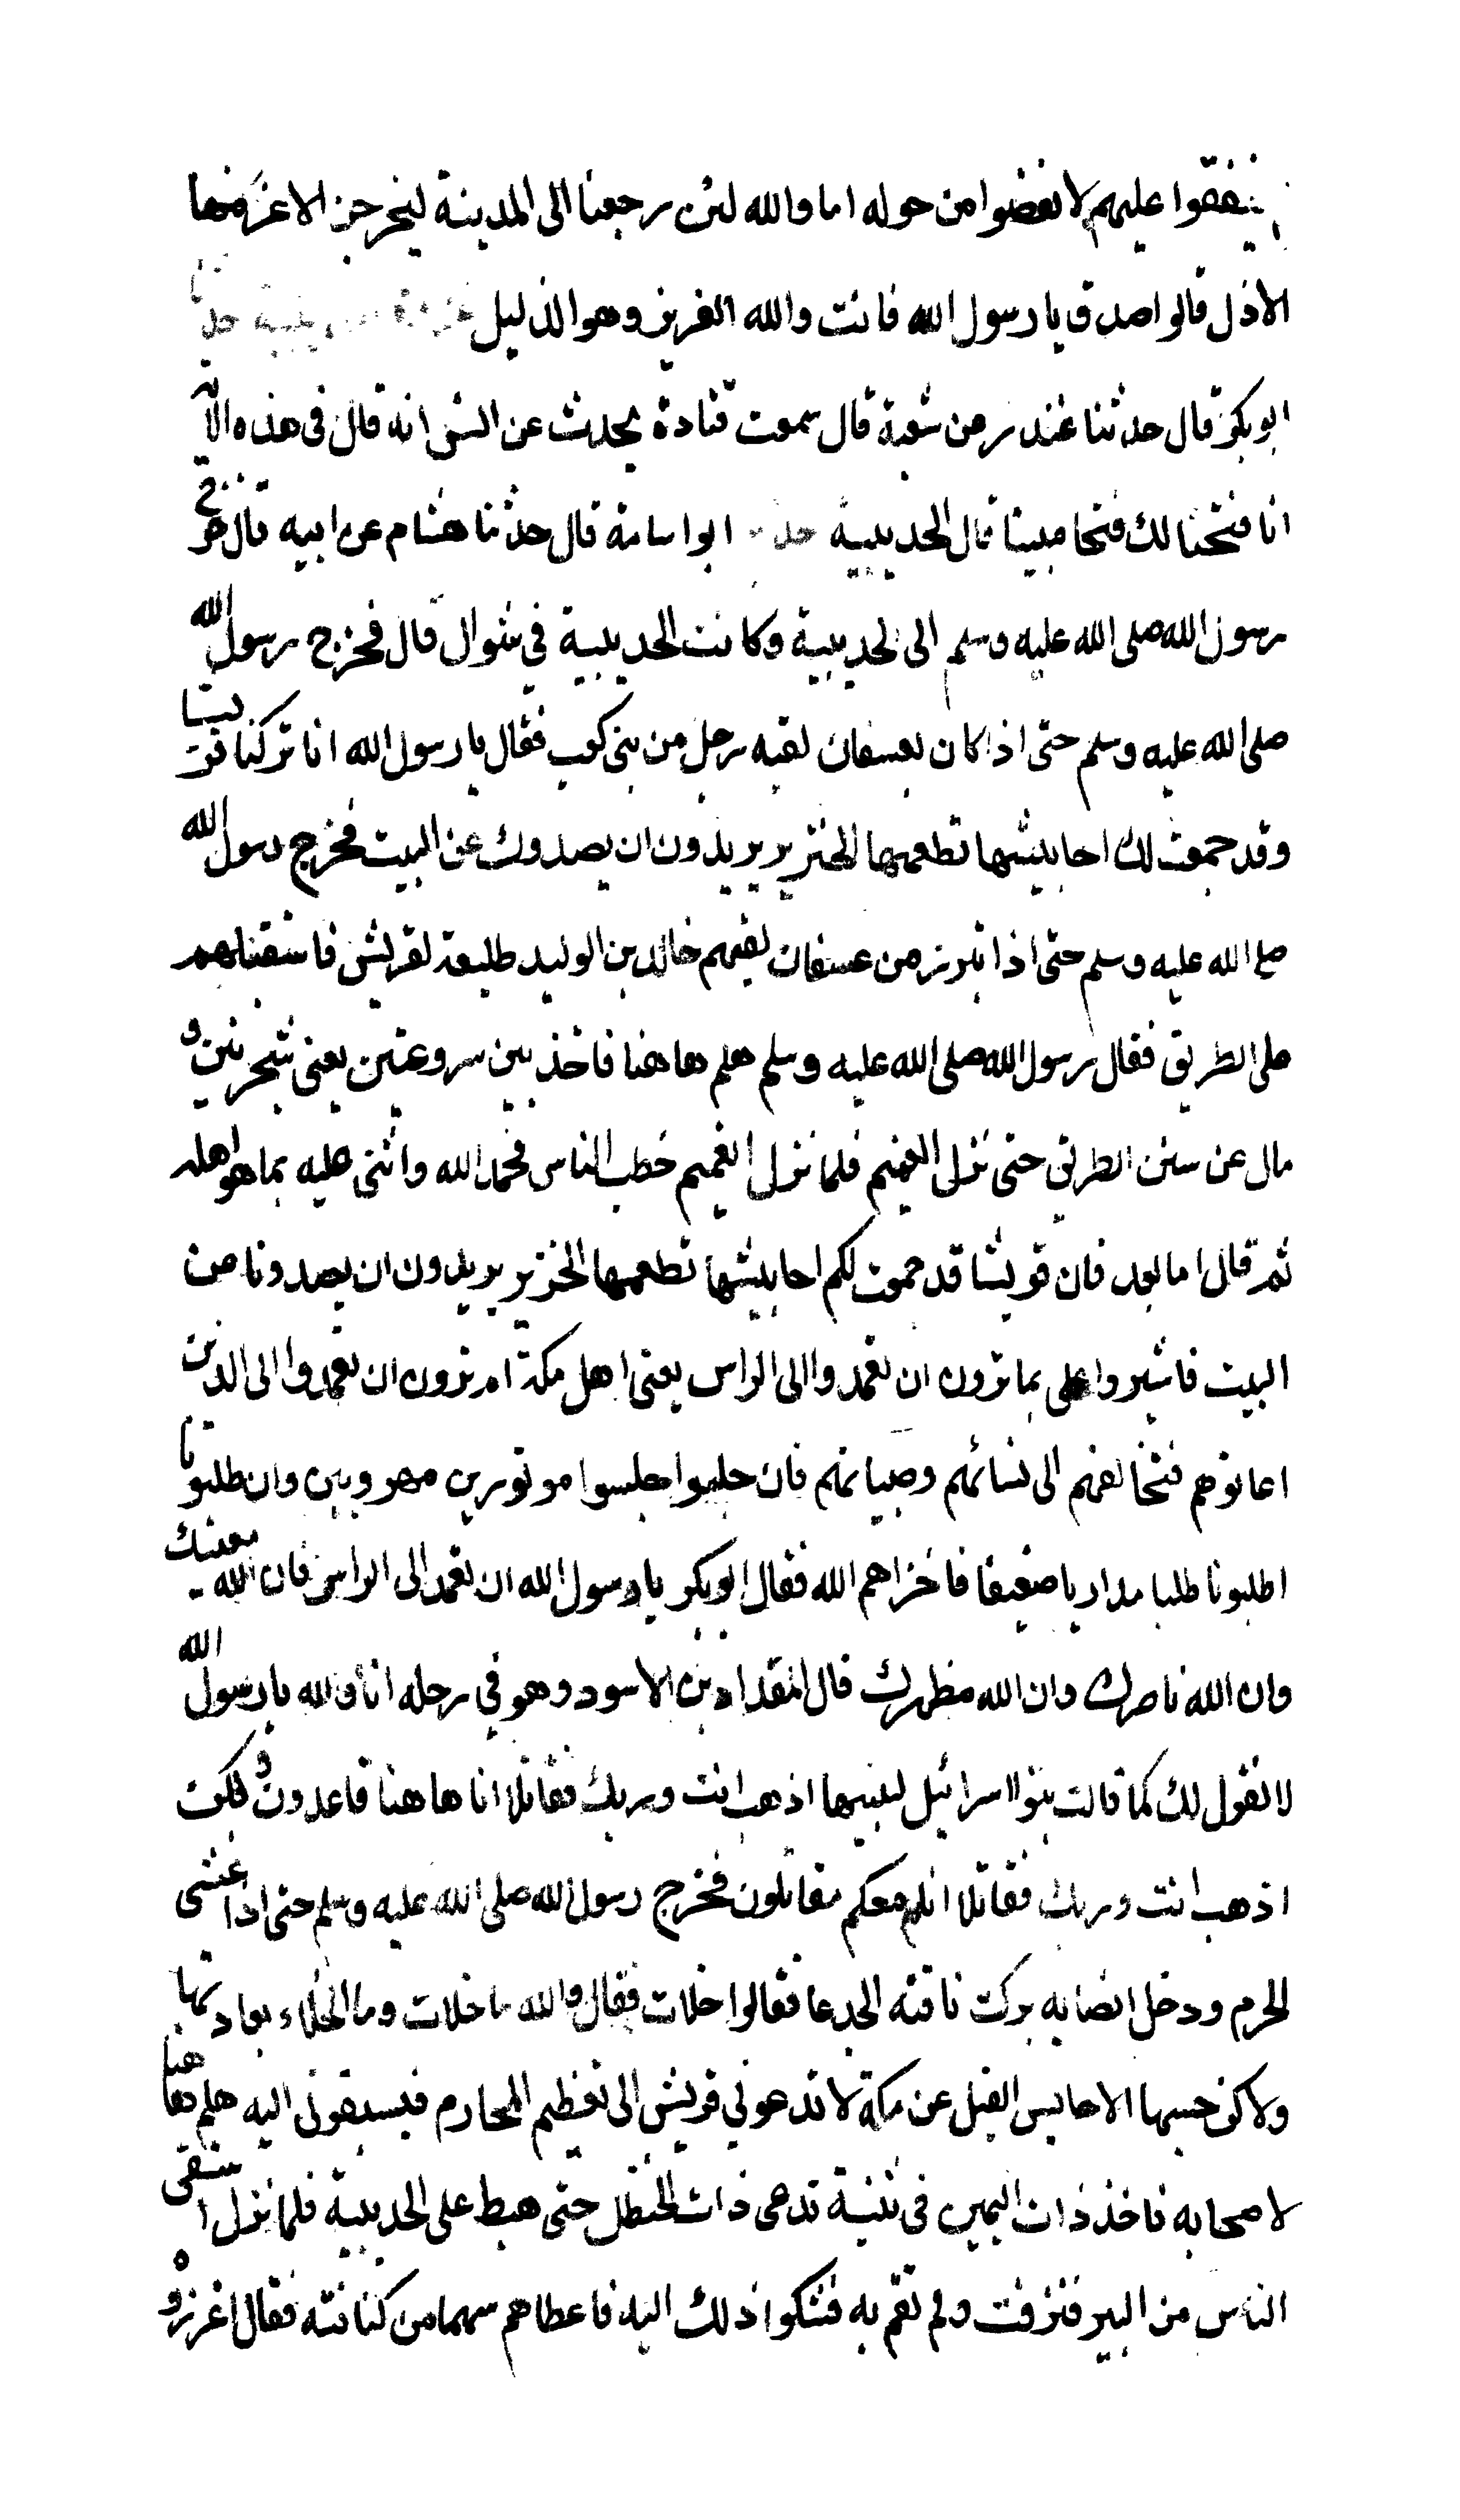 ينفقوا عليهم لانفضوا من حوله اما والله لئن رجعنا الى المدينة ليخرجن الاعز منها
الاذل قالوا صدق يا رسول الله فانت والله العزيز وهو الذليل
ابو بكر قال حدثنا غندر من شعبة قال سمعت قتادة يحدث عن انس انه قال فى هذه الاية
انا فتحنا لك فتحا مبينا قال الحديبية ابو اسامة قال حدثنا هشام عن ابيه قال خرج
رسول الله صلى الله عليه وسلم الى الحديبية وكانت الحديبية في شوال قال فخرج رسول الله
صلى الله عليه وسلم حتى اذا كان بعسفان لقيه رجل من بنى كعب فقال يا رسول الله انا تركنا قريشا
وقد جمعت لك احابيشها تطعمها الخنزير يريدون ان يصدوك عن البيت فخرج رسول الله
صلى الله عليه وسلم حتى اذا تبرز من عسفان لقيهم خالد بن الوليد طليعة لقريش فاستقبلهم
على الطريق فقال رسول الله صلى الله عليه وسلم هلم هاهنا فاخذ بين سروعتين يعنى شجرتين و
مال عن سنن الطريق حتى نزل الغميم فلما نزل الغميم خطب الناس فحمد الله واثنى عليه بما هو اهله
ثم قال اما بعد فان قريشا قد جمعت لكم احابيشها تطعمها الخزير يريدون ان يصدونا من
البيت فاشيروا على بما ترون ان نعمدوا الى الراس يعنى اهل مكة ام ترون ان نعمدوا الى الذين
اعانوهم فنخالفهم الى نسائهم وصبيانهم فان جلسوا جلسوا موتورين مهروبين وان طلبونا
اطلبونا طلبا مداريا ضعيفا فاخزاهم الله فقال ابو بكر يا رسول الله ان نعمد الى الراس فان الله معينك
وان الله ناصرك وان الله مظهرك قال المقداد بن الاسود وهو في رحله انا والله يا رسول الله
لا نقول لك كما قالت بنو اسرائيل لنبيها اذهب انت وربك فقاتلا انا هاهنا قاعدون ولكن
اذهب انت وربك فقاتلا انا معكم مقاتلون فخرج رسول الله صلى الله عليه وسلم حتى اذا غشى
الحرم ودخل انصابه بركت ناقته الجدعا فقالوا خلات فقال والله ما خلات وما الخلاء بعادتها
ولاكن حبسها الا حابس الفيل عن مكة لا تدعوني قريش الى تعظيم المحارم فيسبقوني اليه هلم هاهنا
لاصحابه فاخذ ذات اليمين فى ثنية تدعى ذات الحنظل حتى هبط على الحديبية فلما نزل استقى
الناس من البير فنزفت ولم تقم به فشكوا ذلك اليه فاعطاهم سهما من كنانته فقال اغرزوه